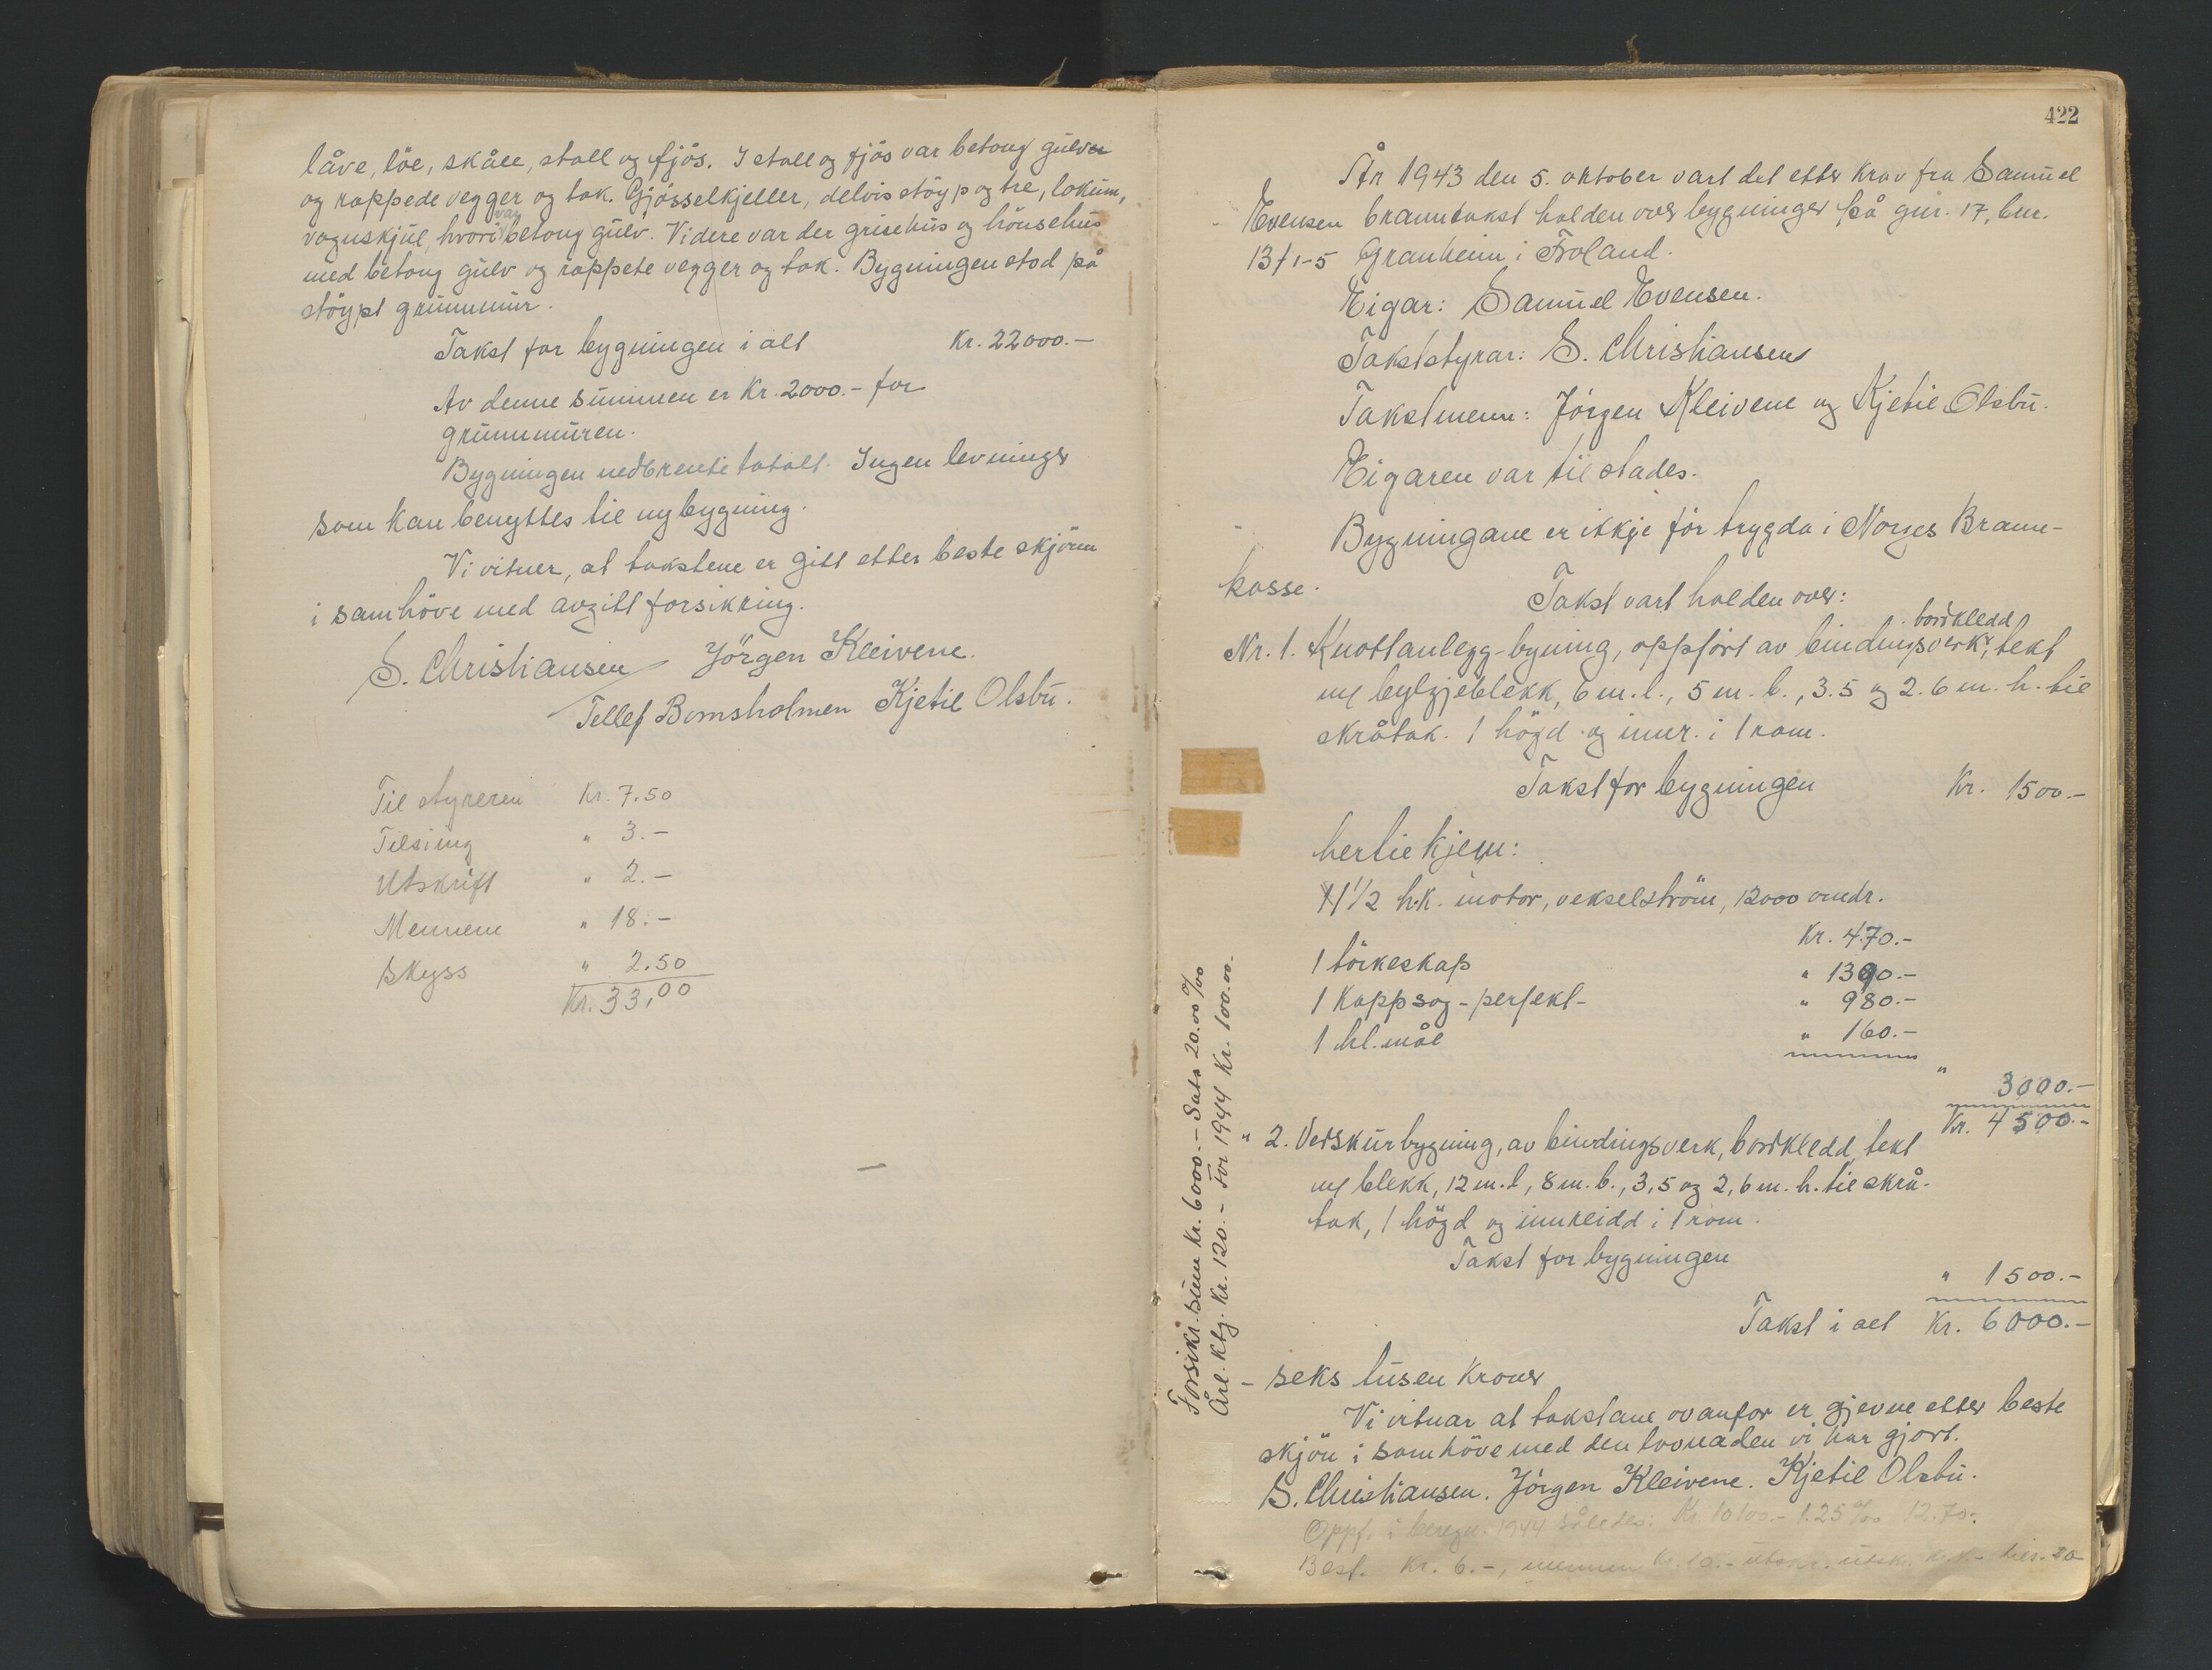 låve, löe, skåle, stall og fjös. I stall og fjös var betong gulver
og rappede vegger og tak. Gjösselkjeller, delvis stöyp og tre, lokum,
vognskjul, hvori var betong gulv. Videre var der grisehus og hönsehus
med betong gulv og rappete vegger og tak. Bygningen stod på
stöypt grunnmur.
Takst for bygningen i alt Kr. 22000.-
Av denne summen er Kr. 2000.- for
grunnmuren.
Bygningen nedbrente totalt. Ingen levninger
som kan benyttes til nybygning.
Vi vitner, at takstene er gitt etter beste skjönn
i samhöve med avgitt forsikring.
S. Christiansen Jörgen Kleivene.
Tellef Bomsholmen Kjetil Olsbu.
Til styreren Kr. 7.50
Tilsing " 3.-
Utskrift " 2.-
Mennene " 18.-
Skyss " 2.50
Kr. 33,00
422
År 1943 den 5. oktober vart det etter krav fra Samuel
Evensen branntakst halden over bygninger på gnr. 17, bnr.
13/1-5 Granheim i Froland.
Eigar: Samuel Evensen.
Takststyrar: S. Christiansen
Takstmenn: Jörgen Kleivene og Kjetil Olsbu.
Eigaren var til stades.
Bygningane er ikkje för trygda i Norges Brann-
kasse.
Takst vart halden over:
bordkledd
Nr. 1. Knottanlegg-byning, oppfört av bindingsverk, tekt
m/ bylgjeblekk, 6 m. l., 5 m. b., 3.5 og 2.6 m. h. til
skråtak. 1 högd og innr. i 1 rom.
Takst for bygningen Kr. 1500.-
hertil kjem:
1 1/2 h.k. motor, vekselström, 12000 omdr.
Kr. 470.-
1 törkeskap " 1390.-
1 Kappsag - perfekt - " 980.-
1 hl. mål " 160.-
" 3000.-
Kr. 4500.-
" 2. Vedskurbygning, av bindingsverk, bordkledd, tekt
m/ blekk, 12 m. l., 8 m. b., 3,5 og 2,6 m. h. til skrå-
tak, 1 högd og innreidd i 1 rom.
Takst for bygningen
" 1500.-
Takst i alt Kr. 6000.-
- seks tusen kroner
Vi vitnar at takstane ovanfor er gjevne etter beste
skjön i samhöve med den lovnaden vi har gjort.
S. Christiansen. Jörgen Kleivene. Kjetil Olsbu.
Oppf. i beregn. 1944 således: Kr. 10100.- 1.25 ‰ 12.70.
Best. Kr. 6.-, mennene Kr. 10.-
Forsikr. sum Kr. 6000.- Sats 20.00 ‰
Årl. ktg. Kr. 120.- For 1944 Kr. 100.00.